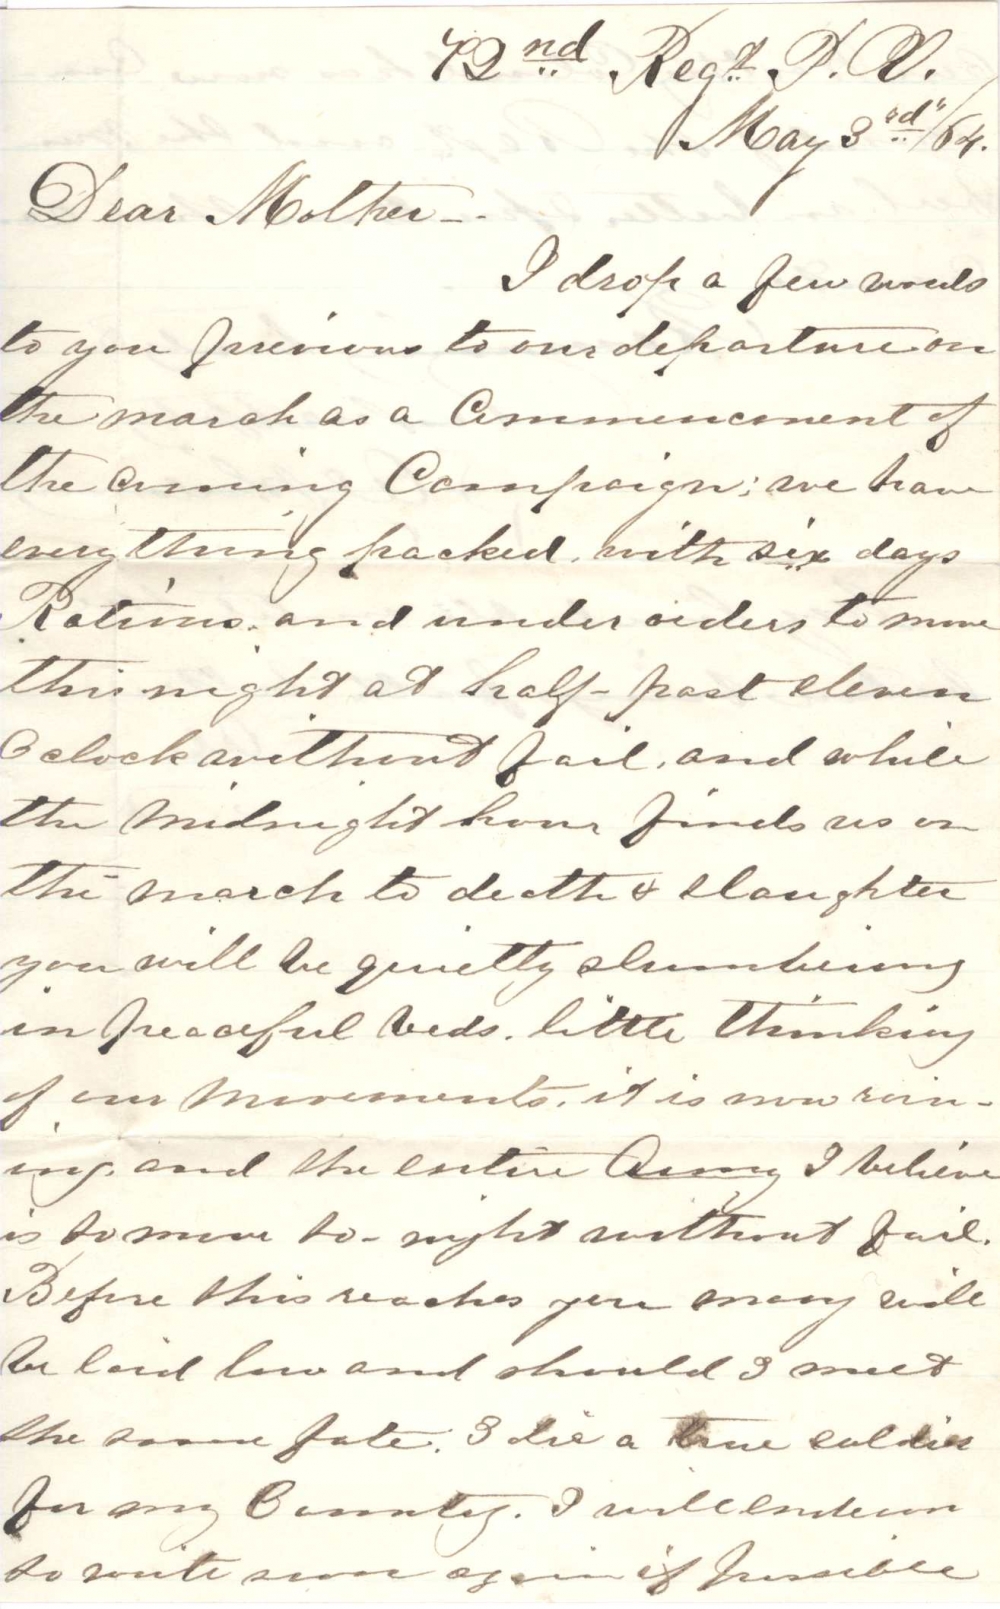 72nd Regt P. V.
May 3rd"/64.
Dear Mother—
I drop a few words
to you previous to our departure on
the march as a Commencement of
the coming Campaign; we have
everything packed. with six days
Rations. and under orders to move
this night at half-past eleven
Oclock without fail. and while
the Midnight hour finds us on
the march to death & slaughter
you will be quietly slumbering
in peaceful beds. little thinking
of our Movements. it is now rain-
ing. and the entire Army I believe
is to move to-night without fail.
Before this reaches you many will
be laid low and should I meet
the same fate. I die a true soldier
for my Country. I will endeavor
to write soon again if possible